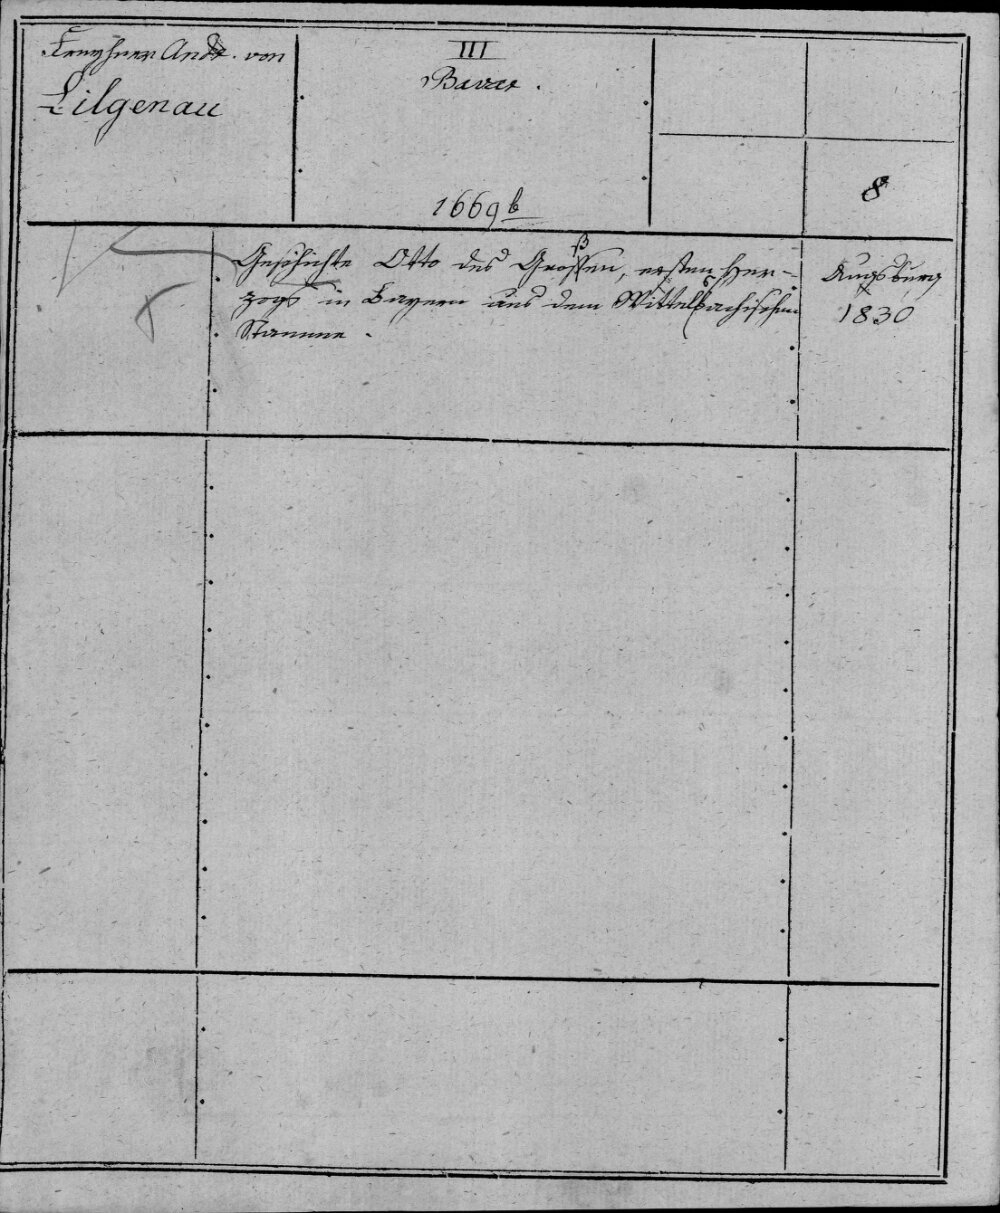 Andr. von
Lilgenau
III
Bavar.
1669 b
8
Geschichte Otto des Großen, ersten Her-
zogs in Bayern aus dem Wittelsbachischen
Stamme.
Augsburg
1830